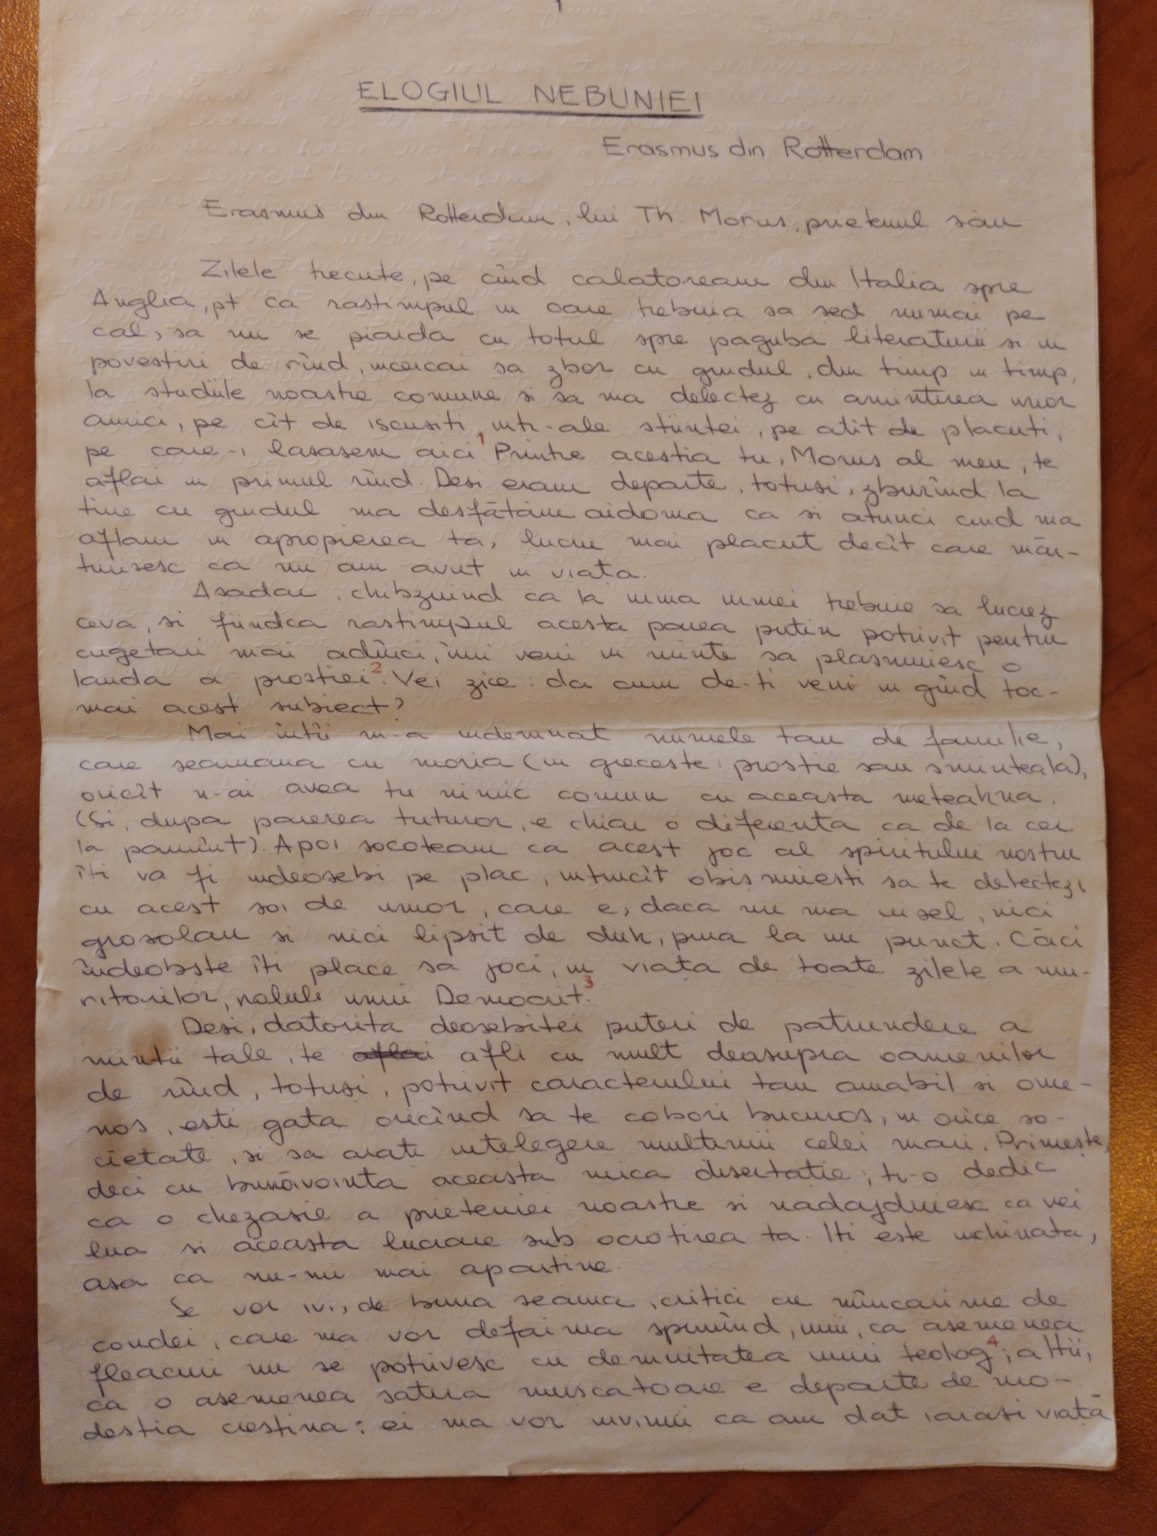 1
ELOGIUL NEBUNIEI
Erasmus din Rotterdam
Erasmus din Rotterdam, lui Th. Morus, prietenul său
Zilele trecute, pe cînd calatoream din Italia spre
Anglia, pt ca rastimpul in care trebuia sa sed numai pe
cal, sa nu se piarda cu totul spre paguba literaturii si in
povestiri de rînd, incercai sa zbor cu gindul, din timp in timp,
la studiile noastre comune si sa ma delectez cu amintirea unor
amici, pe cît de iscusiti intr-ale stiintei, pe atit de placuti,
pe care-i lasasem aici.1 Printre acestia tu, Morus al meu, te
aflai in primul rînd. Desi eram departe, totusi, zburînd la
tine cu gindul ma desfătam aidoma ca si atunci cind ma
aflam in apropierea ta, lucru mai placut decît care măr-
turisesc ca nu am avut in viata.
Asadar, chibzuind ca la urma urmei trebuie sa lucrez
ceva, si fiindca rastimpul acesta parea putin potrivit pentru
cugetari mai adînci, îmi veni in minte sa plasmuiesc o
lauda a prostiei2. Vei zice: da cum de-ti veni in gînd toc-
mai acest subiect?
Mai întîi m-a indemnat numele tau de familie,
care seamana cu moria (in greceste: prostie sau sminteala),
oricît n-ai avea tu nimic comun cu aceasta meteahna.
(Si, dupa parerea tuturor, e chiar o diferenta ca de la cer
la pamînt). Apoi socoteam ca acest joc al spiritului nostru
îti va fi indeosebi pe plac, intrucît obisnuiesti sa te delectezi
cu acest soi de umor, care e, daca nu ma insel, nici
grosolan si nici lipsit de duh, pina la un punct. Căci
îndeobste îti place sa joci, in viața de toate zilele a mu-
ritorilor, rolul unui Democrit.3
Desi, datorita deosebitei puteri de patrundere a
mintii tale, te aflai afli cu mult deasupra oamenilor
de rînd, totusi, potrivit caracterului tau amabil si ome-
nos, esti gata oricînd sa te cobori bucuros, in orice so-
cietate, si sa arati intelegere multimii celei mari. Primeste,
deci cu bunăvointa aceasta mica disertatie; ti-o dedic
ca o chezasie a prieteniei noastre si nadajduiesc ca vei
lua si aceasta lucrare sub ocrotirea ta. Iti este inchinata,
asa ca nu-mi mai apartine.
Se vor ivi, de buna seama, critici cu mîncarime de
condei, care ma vor defaima spunînd, unii, ca asemenea
fleacuri nu se potrivesc cu demnitatea unui teolog4; altii,
ca o asemenea satira muscatoare e departe de mo-
destia crestina: ei ma vor invinui ca am dat iarasi viață